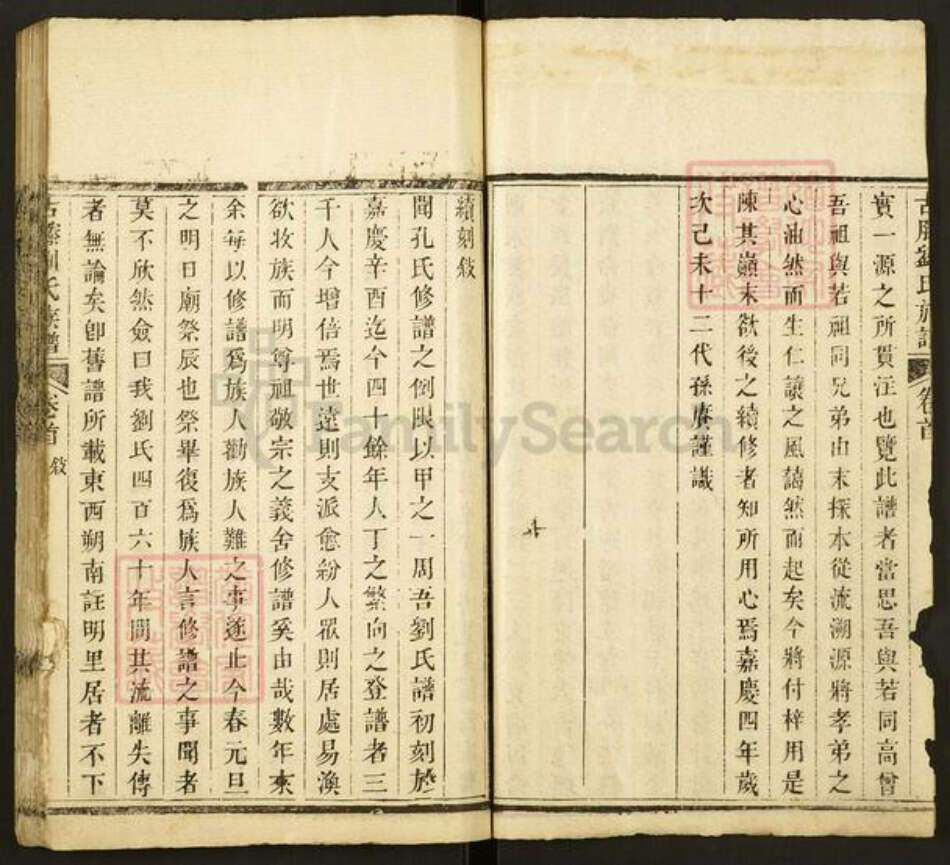 古滕劉氏族譜
卷首
實一源之所貫注也覽此譜者當思吾與若同高曾
吾祖與若祖同兄弟由末探本從流溯源將孝弟之
心油然而生仁讓之風藹然而起矣今將付梓用是
陳其巔末欲後之續修者知所用心焉嘉慶四年歲
次己未十二代孫賡謹識
續刻敘
聞孔氏修譜之例限以甲之一周吾劉氏譜初刻於
嘉慶辛酉迄今四十餘年人丁之繁向之登譜者三
千人今增倍焉世遠則支派愈紛人眾則居處易渙
欲收族而明尊祖敬宗之義舍修譜奚由哉數年來
余每以修譜為族人勸族人難之事遂止今春元旦
之明日廟祭辰也祭畢復為族人言修譜之事聞者
莫不欣然僉曰我劉氏四百六十年間其流離失傳
者無論矣卽舊譜所載東西朔南註明里居者不下
古滕劉氏族譜
卷首
敘
FamilySearch